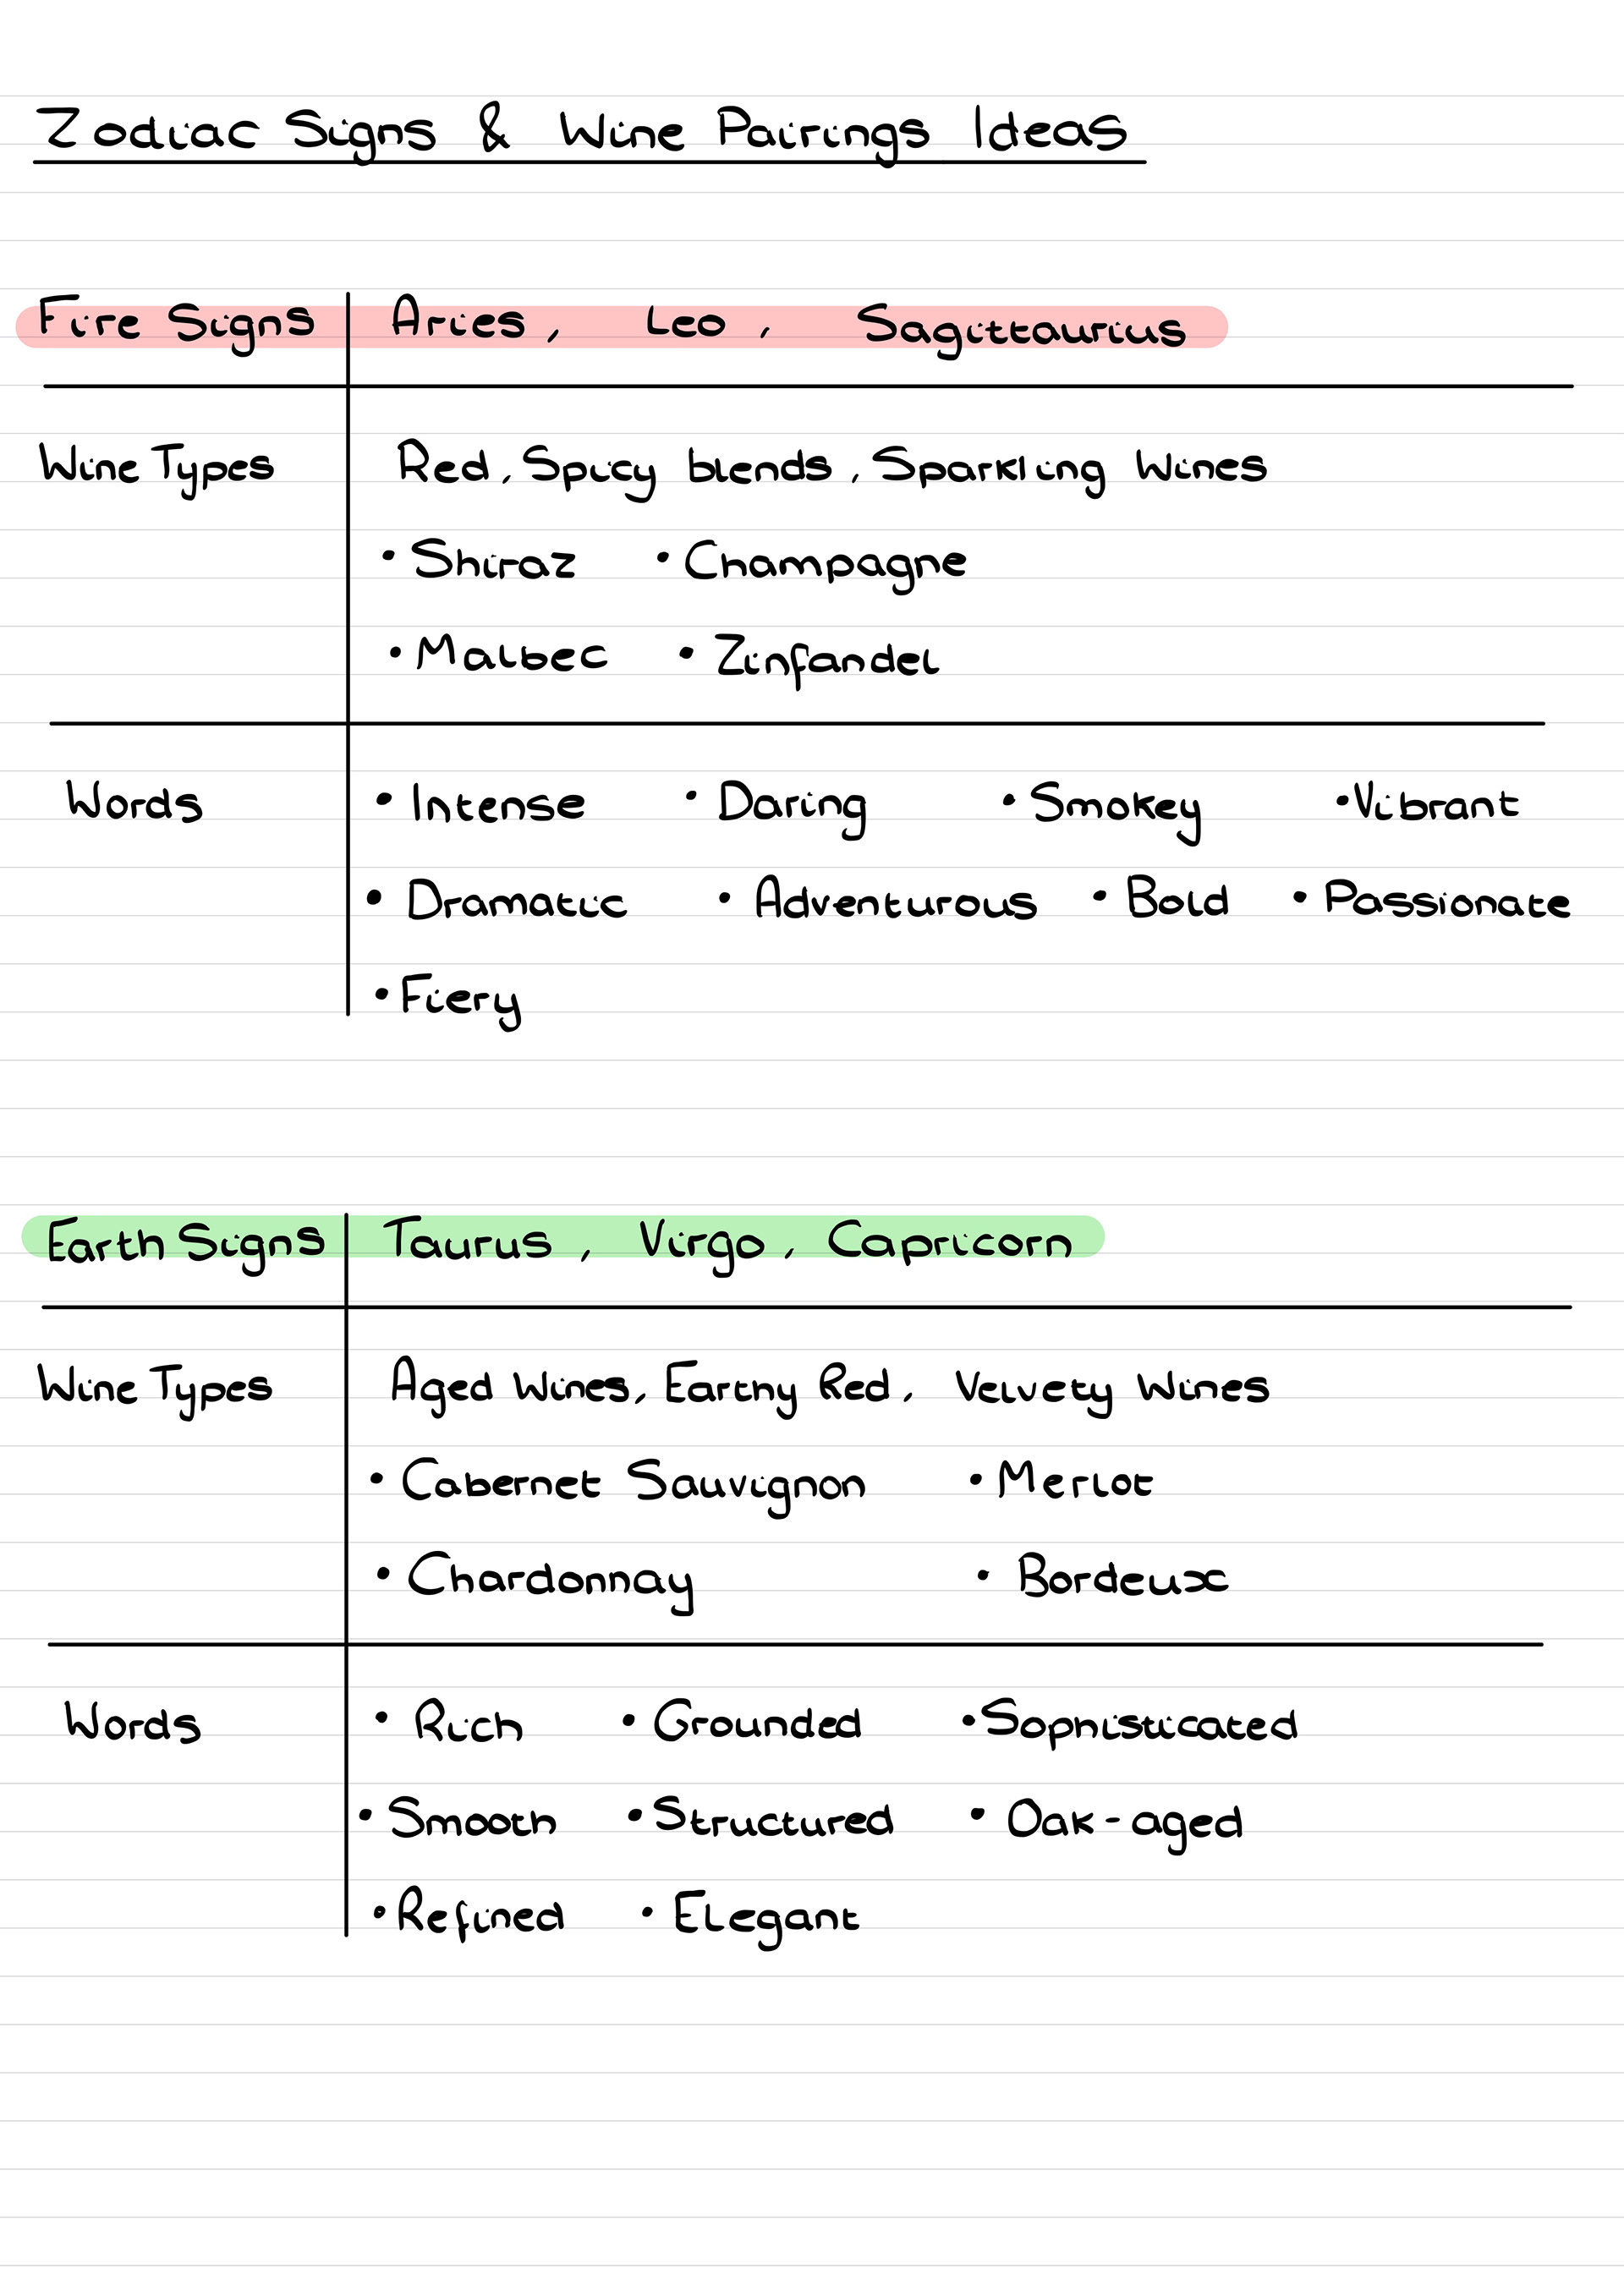 Zodiac Signs & Wine Pairings Ideas
Fire Signs Aries, Leo, Sagittaurius
Wine Types Red, Spicy blends, Sparkling Wines
• Shiraz • Champagne
• Malbec • Zinfandel
Words • Intense • Daring • Smokey • Vibrant
• Dramatic • Adventurous • Bold • Passionate
• Fiery
Earth Signs Taurus, Virgo, Capricorn
Wine Types Aged Wines, Earthy Red, Velvety Wines
• Cabernet Sauvignon • Merlot
• Chardonnay • Bordeux
Words • Rich • Grounded • Sophisticated
• Smooth • Structured • Oak-aged
• Refined • Elegant